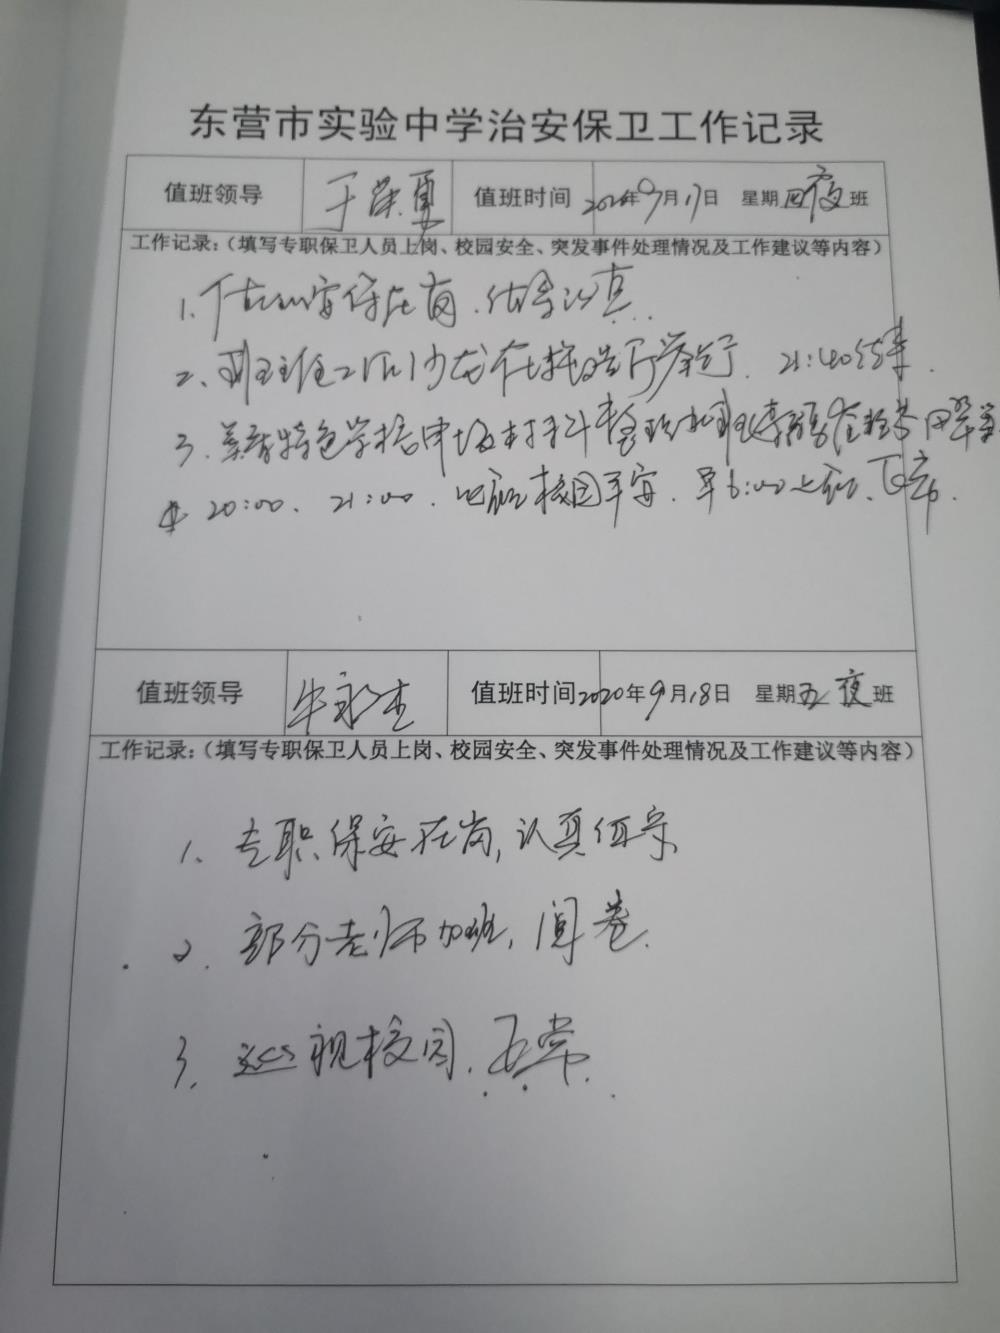 东营市实验中学治安保卫工作记录
值班领导 于荣夏 值班时间 2020年9月17日 星期四夜班
工作记录：（填写专职保卫人员上岗、校园安全、突发事件处理情况及工作建议等内容）
1. 保安在岗.认真.
2、班主任在报告厅举行. 21:40结束.
3. 美育特色学校申报材料整理
20:00、21:00.巡视校园平安.早6:00巡视、正常.
值班领导 牛永杰 值班时间2020年9月18日 星期五夜班
工作记录：（填写专职保卫人员上岗、校园安全、突发事件处理情况及工作建议等内容）
1、专职保安在岗,认真值守
2. 部分老师加班,阅卷.
3. 巡视校园.正常.